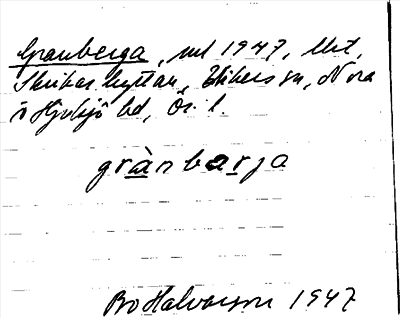 Granberga, nml 1947, Utt,
Skrikarhyttan, Vikers sn, Nora
o Hjulsjö bd, Ör. l.
grànbarja
Bo Halvarson 1947